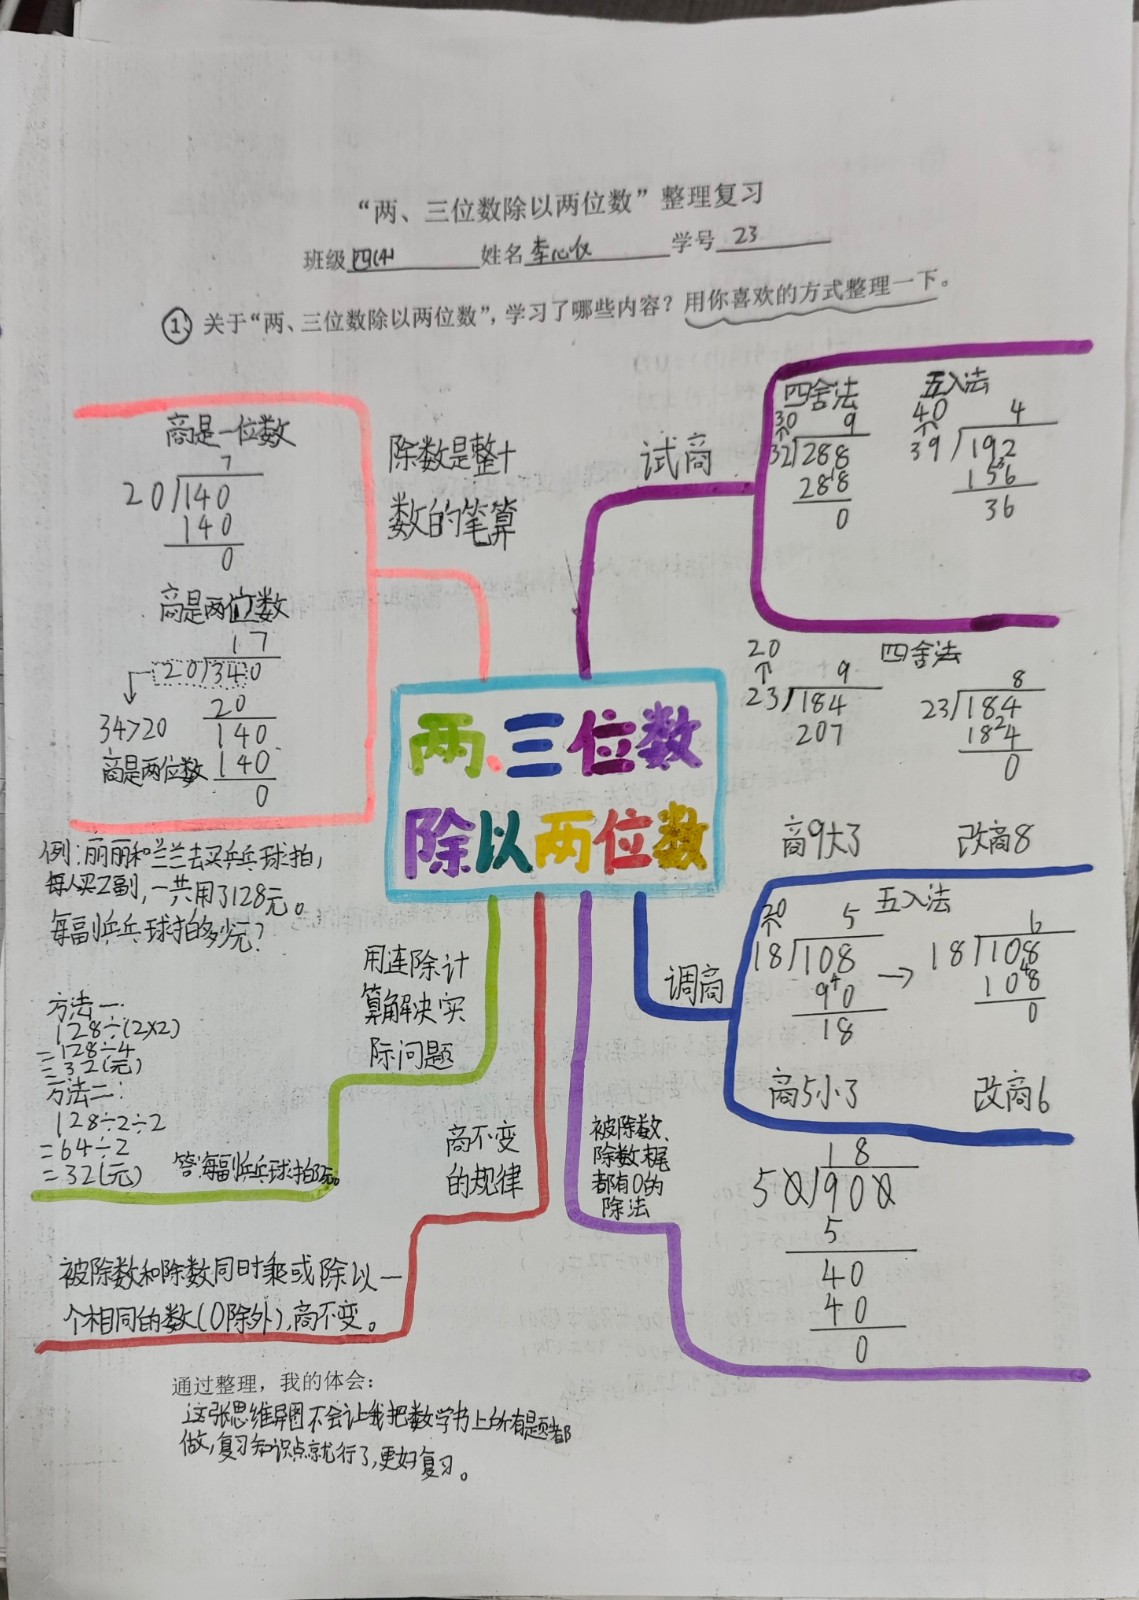 “两、三位数除以两位数”整理复习
班级 四(4) 姓名 李心仪 学号 23
① 关于“两、三位数除以两位数”，学习了哪些内容？用你喜欢的方式整理一下。
两、三位数
除以两位数
除数是整十
数的笔算
商是一位数
7
20√140
140
0
商是两位数
17
20√340
34>20
20
140
商是两位数
140
0
试商
四舍法
30
9
32√288
288
0
五入法
40
4
39√192
156
36
20
四舍法
9
23√184
207
8
23√184
184
0
商9大了
改商8
调商
五入法
20
5
18√108
90
18
→
6
18√108
108
0
商5小了
改商6
被除数、
除数末尾
都有0的
除法
18
50√900
5
40
40
0
商不变
的规律
被除数和除数同时乘或除以一
个相同的数(0除外),商不变。
用连除计
算解决实
际问题
例:丽丽和兰兰去买乒乓球拍,
每人买2副,一共用了128元。
每副乒乓球拍多少元?
方法一:
128÷(2×2)
=128÷4
=32(元)
方法二:
128÷2÷2
=64÷2
=32(元)
答:每副乒乓球拍32元。
通过整理，我的体会：
这张思维导图不会让我把数学书上的所有题都
做,复习知识点就行了,更好复习。